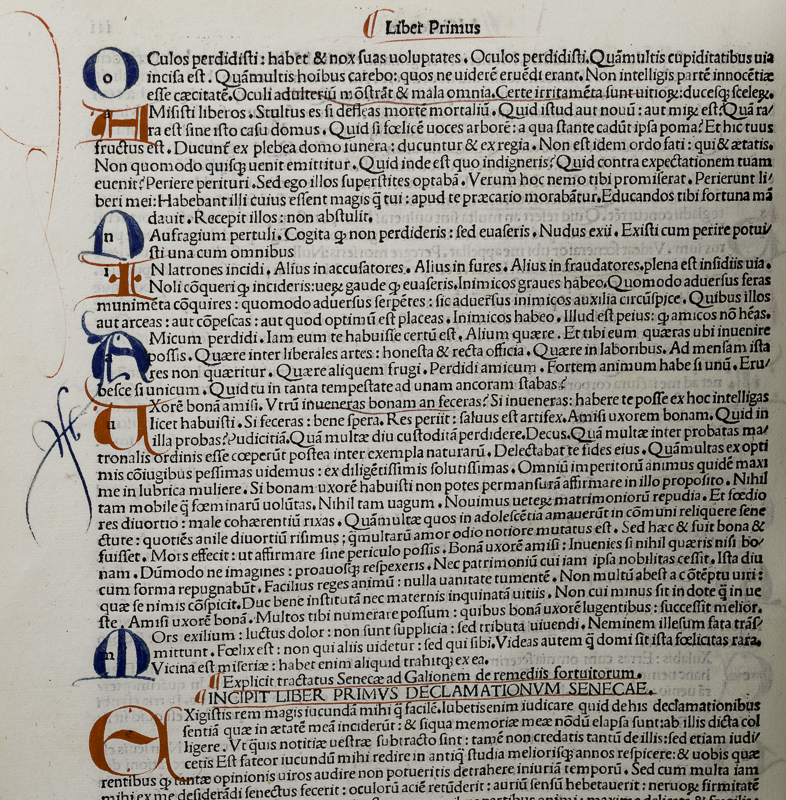 Liber Primus
OCulos perdidisti : habet & nox suas uoluptates . Oculos perdidisti.Quãmultis cupiditatibus uia
incisa est . Quãmultis hoibus carebo: quos ne uiderẽ eruẽdi erant. Non intelligis partẽ innocẽtiæ
esse cæcitatẽ. Oculi adulteriũ mõstrãt & mala omnia. Certe irritamẽta sunt uitioꝝ: ducesqꝫ sceleꝝ.
AMisisti liberos . Stultus es si defleas mortẽ mortaliũ . Quid istud aut nouũ : aut miꝝ est? Quã ra/
ra est sine isto casu domus . Quid si fœlicẽ uoces arborẽ : a qua stante cadũt ipsa poma? Et hic tuus
fructus est . Ducunt̃ ex plebea domo funera : ducuntur & ex regia . Non est idem ordo fati : qui & ætatis.
Non quomodo quisqꝫ uenit emittitur . Quid inde est quo indigneris? Quid contra expectationem tuam
euenit? Periere perituri . Sed ego illos superstites optabã . Verum hoc nemo tibi promiserat . Perierunt li/
beri mei: Habebant illi cuius essent magis q̃ tui : apud te præcario morabãtur. Educandos tibi fortuna mã
dauit . Recepit illos : non abstulit.
NAufragium pertuli . Cogita ꝙ non perdideris : sed euaseris . Nudus exii . Existi cum perire potui/
sti una cum omnibus
IN latrones incidi . Alius in accusatores . Alius in fures . Alius in fraudatores.plena est insidiis uia.
Noli cõqueri ꝙ incideris:ueꝝ gaude ꝙ euaseris. Inimicos graues habeo. Quomodo aduersus feras
munimẽta cõquires : quomodo aduersus serpẽtes : sic aduersus inimicos auxilia circũspice . Quibus illos
aut arceas : aut cõpescas : aut quod optimũ est placeas . Inimicos habeo . Illud est peius: ꝙ amicos nõ hẽas.
AMicum perdidi. Iam eum te habuisse certũ est . Alium quære . Et tibi eum quæras ubi inuenire
possis . Quære inter liberales artes : honesta & recta officia . Quære in laboribus . Ad mensam ista
res non quæritur . Quære aliquem frugi . Perdidi amicum . Fortem animum habe si unũ . Eru/
besce si unicum . Quid tu in tanta tempestate ad unam ancoram stabas?
UXorẽ bonã amisi. Vtrũ inueneras bonam an feceras? Si inueneras: habere te posse ex hoc intelligas
licet habuisti . Si feceras : bene spera. Res periit : saluus est artifex. Amisi uxorem bonam. Quid in
illa probas? Pudicitiã. Quã multæ diu custoditã perdidere. Decus. Quã multæ inter probatas ma/
tronalis ordinis esse cœperũt postea inter exempla naturarũ . Delectabat te fides eius . Quãmultas ex opti
mis cõiugibus pessimas uidemus : ex diligẽtissimis solutissimas . Omniũ imperitorũ animus quidẽ maxi
me in lubrica muliere . Si bonam uxorẽ habuisti non potes permansurã affirmare in illo proposito . Nihil
tam mobile q̃ fœminarũ uolũtas. Nihil tam uagum . Nouimus ueteꝝ matrimoniorũ repudia. Et fœdio
res diuortio : male cohærentiũ rixas . Quãmultæ quos in adolescẽtia amauerũt in cõmuni reliquere sene
ctute : quotiẽs anile diuortiũ risimus ; q̃multarũ amor odio notiore mutatus est . Sed hæc & fuit bona &
fuisset . Mors effecit : ut affirmare sine periculo possis . Bonã uxorẽ amisi : Inuenies si nihil quæris nisi bo/
nam . Dũmodo ne imagines : proauosqꝫ respexeris . Nec patrimoniũ cui iam ipsa nobilitas cessit. Ista diu
cum forma repugnabũt . Facilius reges animũ : nulla uanitate tumentẽ . Non multũ abest a cõtẽptu uiri :
quæ se nimis cõspicit. Duc bene institutã nec maternis inquinatã uitiis . Non cui minus sit in dote q̃ in ue
ste . Amisi uxorẽ bonã. Multos tibi numerare possum : quibus bonã uxorẽ lugentibus : successit melior.
MOrs exilium : luctus dolor : non sunt supplicia : sed tributa uiuendi . Neminem illesum fata trãs/
mittunt . Fœlix est : non qui aliis uidetur : sed qui sibi. Videas autem q̃ domi sit ista fœlicitas rara.
Vicina est miseriæ : habet enim aliquid trahitqꝫ ex ea .
Explicit tractatus Senecæ ad Galionem de remediis fortuitorum.
INCIPIT LIBER PRIMVS DECLAMATIONVM SENECAE.
EXigistis rem magis iucundã mihi q̃ facilẽ.Iubetis enim iudicare quid de his declamationibus
sentiã quæ in ætatẽ meã inciderũt : & siqua memoriæ meæ nõdũ elapsa sunt:ab illis dicta col
ligere . Vt q̃uis notitiæ uestræ subtracto sint : tamẽ non credatis tantũ de illis:sed etiam iudi/
cetis Est fateor iucundũ mihi redire in antiq̃ studia meliorisqꝫ annos respicere:& uobis quæ
rentibus ꝙ tantæ opinionis uiros audire non potueritis detrahere iniuriã temporũ . Sed cum multa iam
mihi ex me desiderãdi senectus fecerit : oculorũ aciẽ retũderit : auriũ sensũ hebetauerit : neruoꝝ firmitatẽ